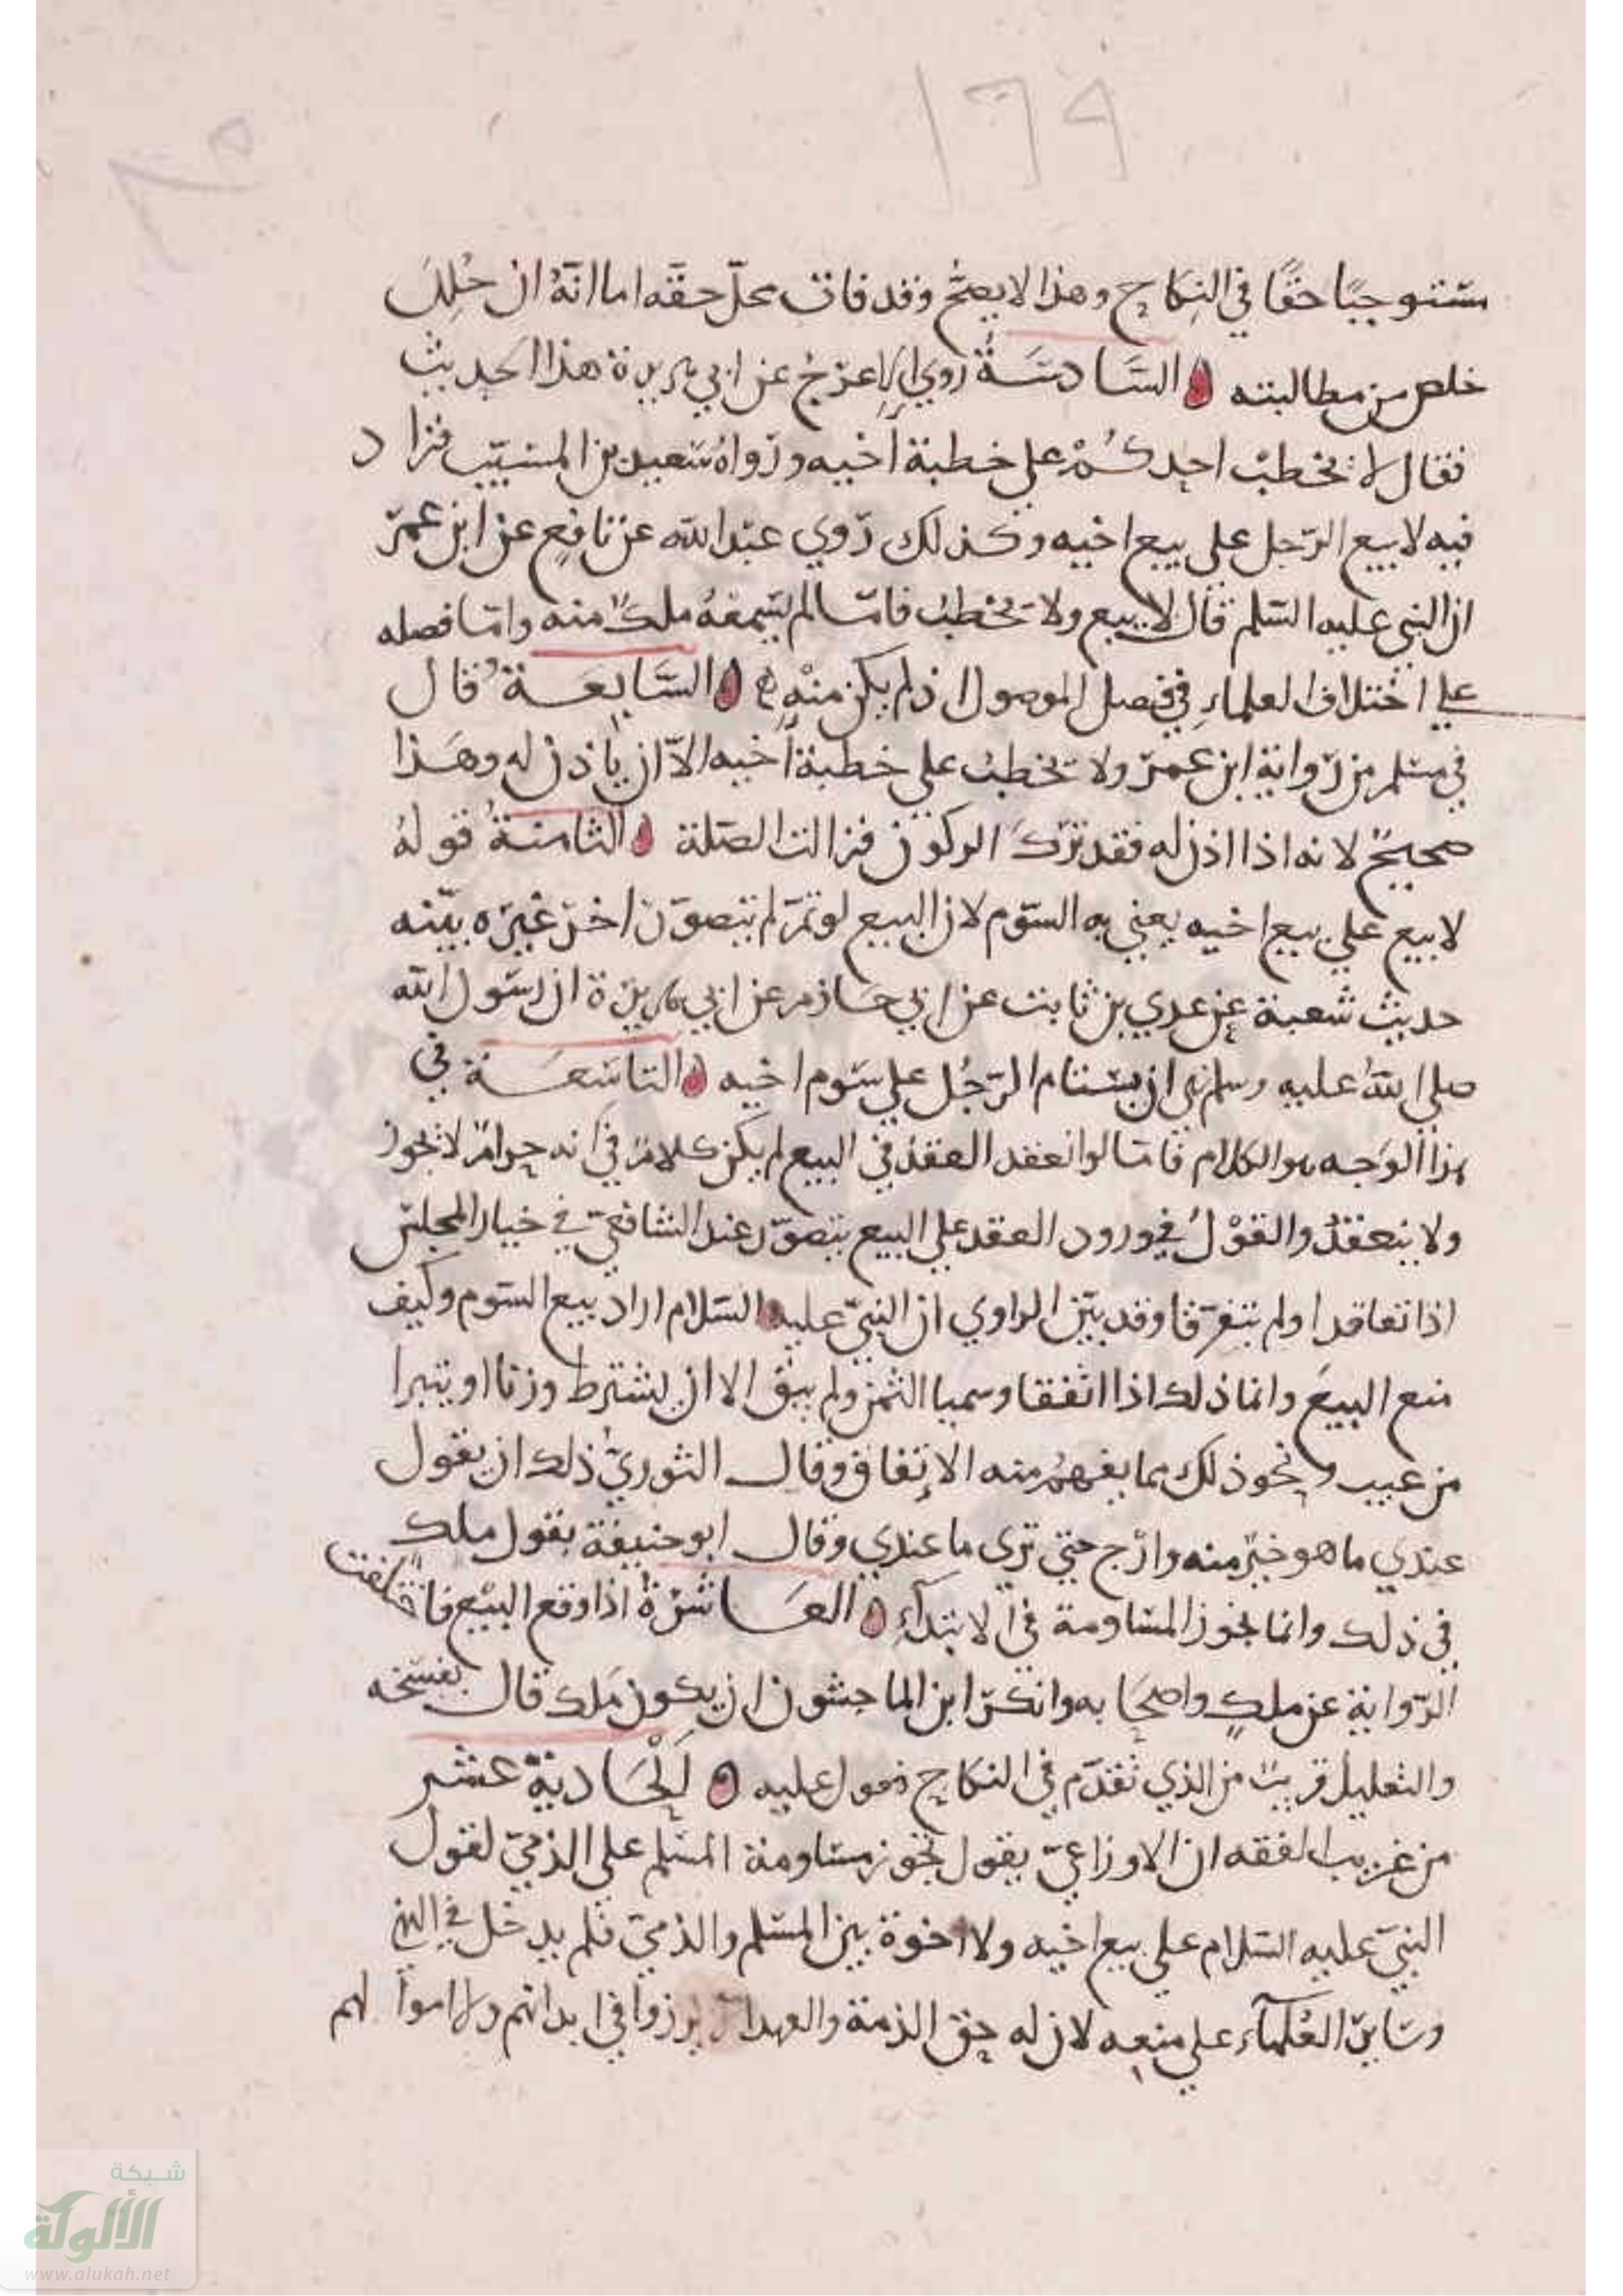 ١٦٩
ستوجبًا حقًا في النكاح وهذا لا يصحّ وقد فات محلّ حقه اما انهُ ان حُلِلَ
خلص من مطالبته السَّادسَةُ روي الاعرَج عن ابي هريرة هذا الحديث
فقال لا يخطبْ احدكُمْ على خطبة اخيه ورواهُ سَعيد بن المسيّب فزاد
فيه لا يبيع الرّجل على بيع اخيه وكذلك رَوي عبد الله عن نافع عن ابن عمرَ
ان النبي عليه السلم قال لا يبيع ولا يخطب فامّا لم يسمعهُ ملك منه وامّا فصله
على اختلاف العلماءِ في فصل الموصول اذ لم يكن منه السَّابعَةُ قال
في مسلم من رّواية ابن عمرَ ولا يخطب على خطبة أخيه الاّ ان يأذن له وهَذا
صحيحٌ لانه اذا اذن له فقد ترَكَ الركون فزالت الصّلة الثامنةُ قولهُ
لا يبيع على بيع اخيه يعني به السّوم لان البيع لو تمّ لم يتصوّر اخر غيره بيّنه
حديث شعبة عن عدي بن ثابت عن ابي حازم عن ابي هريرة ان رسَول الله
صلى اللهُ عليه وسلم نهى ان يستام الرّجُل على سَوم اخيه التاسعَة في
هذا الوَجه هو الكلام فامّا لو انعقد العقدُ في البيع لم يكن كلامٌ في انه حرامٌ لا يجوز
ولا ينعقدُ والقوْلُ في ورود العقد على البيع يتصوّر عند الشافعيّ في خيار المجلسّ
اذا تعاقدا ولم يتفرّقا وقد بيّن الراوي ان النبيّ عليه السّلام اراد بيع السّوم وكيف
منع البيعَ وانما ذلك اذا اتفقا وسميا الثمن ولم يبق الا ان يشترط وزنا او يتبرا
من عيب ونحو ذلك مما يفهمُ منه الاتفاق وقال الثوريُّ ذلك ان يقول
عندي ما هو خيرٌ منه وارج حتى ترى ما عندي وقال ابو حنيفة بقول ملك
في ذلك وانما يجوز المسَاومة في الابتدآءِ العَاشرَةُ اذا وقع البيْع فاختلفت
الرّواية عن ملكٍ واصحَابه وانكرَ ابن الماجشون ان يكون مَلك قال بفسخه
والتعليل قريب من الذي تقدّم في النكاح فعول عليه الحَادية عشر
من غريب الفقه ان الاوزاعيّ يقول تجوز مساومة المسلم على الذميّ لقول
النبيّ عليه السّلام على بيع اخيه ولا اخوة بين المسّلم والذميّ فلم يدخل في النهي
وسَايرَ العُلماء على منعه لان له حق الذمة والعهد في ابدانهم ولا اموا لهم
شبكة
الألوكة
www.alukah.net